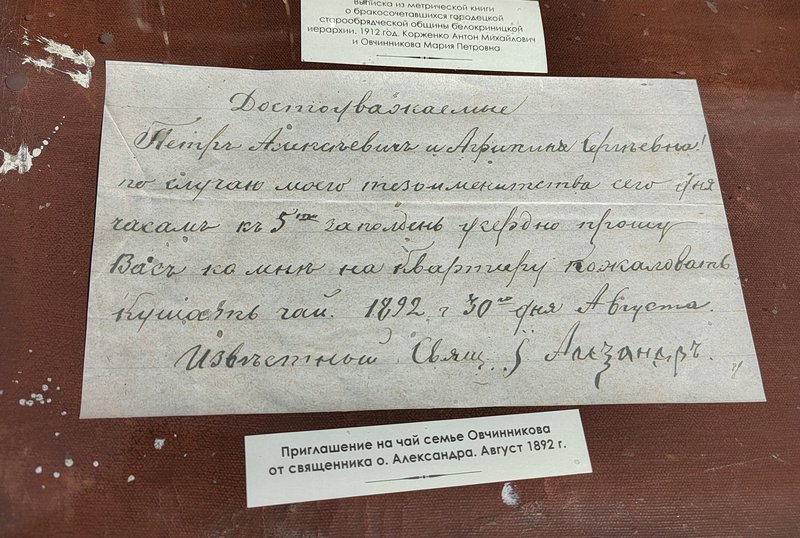 Выписка из метрической книги
о бракосочетавшихся городецкой
старообрядческой общины белокриницкой
иерархии. 1912 год. Корженко Антон Михайлович
и Овчинникова Мария Петровна
Достоуважаемые
Петръ Алексѣевичъ и Агрипина Сергѣевна!
по случаю моего тезоименитства сего дня
часамъ къ 5 ти заполдень усердно прошу
Васъ ко мнѣ на квартиру пожаловать
кушать чай. 1892 г 30 го дня Августа.
Извѣстный Свящ. Александръ.
Приглашение на чай семье Овчинникова
от священника о. Александра. Август 1892 г.